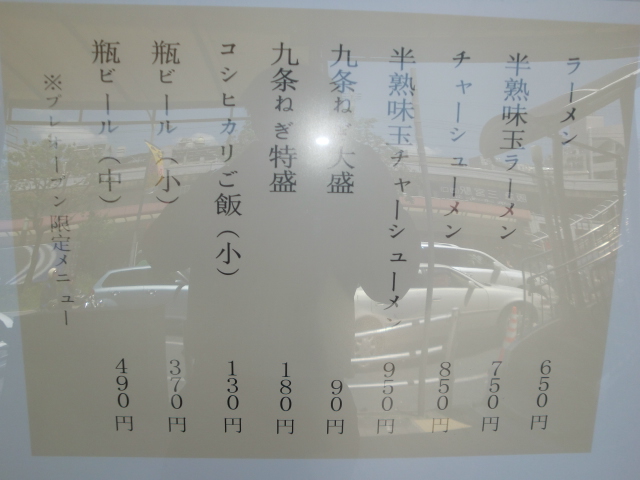 ラーメン 650円
半熟味玉ラーメン 750円
チャーシューメン 850円
半熟味玉チャーシューメン 950円
九条ねぎ大盛 90円
九条ねぎ特盛 180円
コシヒカリご飯(小) 130円
瓶ビール(小) 370円
瓶ビール(中) 490円
※プレオープン限定メニュー